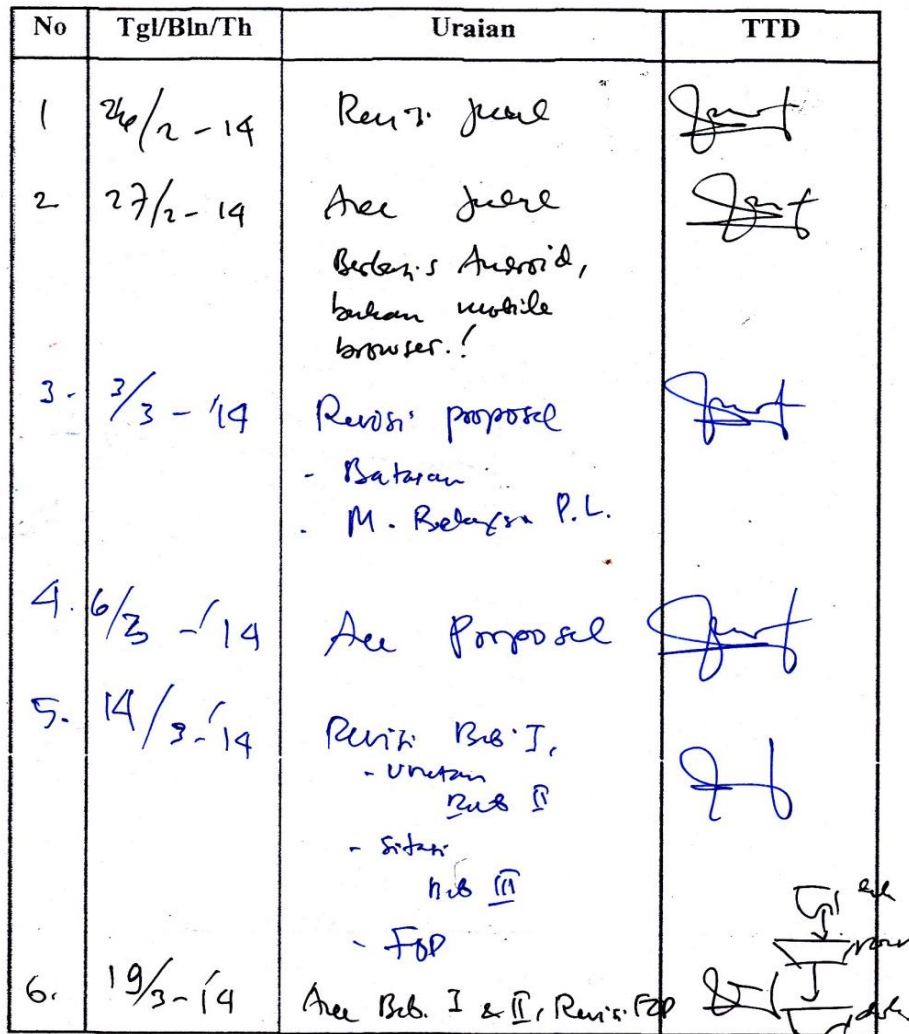 No Tgl/Bln/Th Uraian TTD
1 26/2 - 14 Revisi Judul
2 27/2 - 14 Acc Judul
Berbasis Android,
bukan mobile
browser.!
3. 3/3 - '14 Revisi proposal
- Batasan
- M. Rekayasa P.L.
4. 6/3 - '14 Acc Proposal
5. 14/3 - '14 Revisi Bab I,
- Urutan
Bab II
- Sitasi
Bab III
- FOD
6. 19/3 - '14 Acc Bab. I & II, Revisi FOD